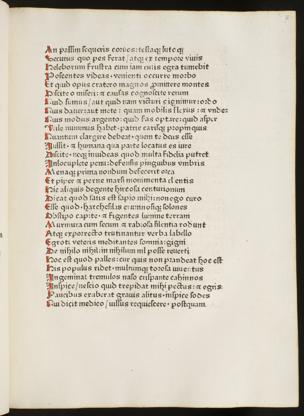 An passim sequeris coruos: testaq; lutoq;
Securus quo pes ferat/ atq; ex tempore viuis
Helleborum frustra cum iam cutis egra tumebit
Poscentes videas. venienti occurrite morbo
Et quid opus cratero magnos promittere montes
Discite o miseri: & causas cognoscite rerum
Quid sumus/ aut quid nam victuri gignimur: ordo
Quis datus: aut mete quam mobilis flexus: & vnde:
Quis modus argento: quid fas optare: quid asper
Vtile nummus habet. patrie carisq; propinquis
Quantum elargire debeat. quem te deus esse
Iussit. & humana qua parte locatus es in re
Disce. neq; inuideas quod multa fidelia putret
In locuplete penu: defensis pinguibus vmbris
Menaq; prima nondum defecerit orca
Et piper & perne marsi monumenta clientis
Hic aliquis de gente hircosa centurionum
Dicat quod satis est sapio mihi: non ego curo
Esse quod archesilas erumnosiq; solones
Obstipo capite. & figentes lumine terram
Murmura cum secum & rabiosa silentia rodunt
Atq; exporrecto trutinantur verba labello
Egroti veteris meditantes somnia: gigni
De nihilo nihil: in nihilum nil posse reuerti
Hoc est quod palles: cur quis non prandeat hoc est
His populus ridet. multumq; torosa iuuentus
Ingeminat tremulos naso crispante cahinnos
Inspice/ nescio quid trepidat mihi pectus: & egris
Faucibus exuberat grauis alitus. inspice sodes
Qui dicit medico/ iussus requiescere. postquam